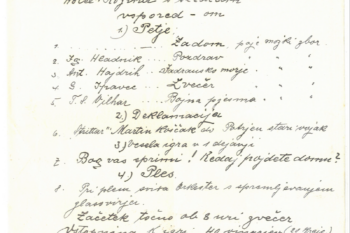 vspored - om
1) Petje.
1. Zadom poje mojki zbor
2. Fg. Hladnik... Pozdrav " " "
3. Ant. Hajdrih... Jadransko morje " "
4. G. Ipavec... Zvečer " " "
5. F. S. Vilhar... Bojna pjesma " "
2) Deklamacije
6. Martin Kovčak ali Pohjen stari vojak
3) Vesela igra v dejanji
7. Bog vas sprimi! Kedaj pojdete domu?
4) Ples.
8. Pri plesu svira Orkester s spremljevanjem
glasovirjes.
Začetek točno ob 8 uri zvečer